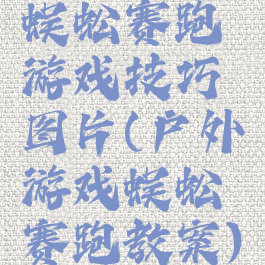 蜈蚣赛跑
游戏技巧
图片(户外
游戏蜈蚣
赛跑教案)